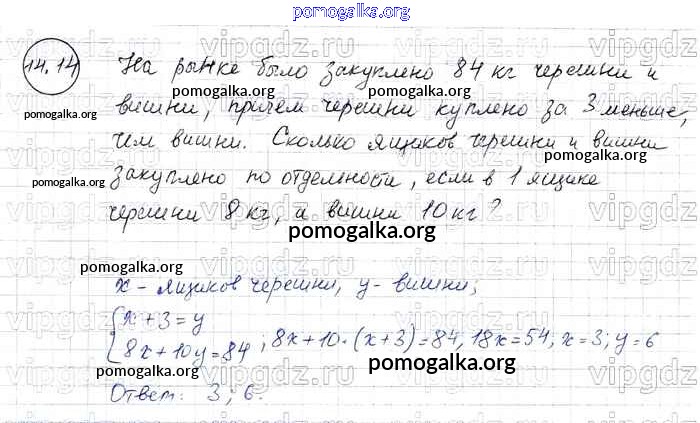 pomogalka.org
14.14 На рынке было закуплено 84 кг черешни и
pomogalka.org
вишни, причём черешни куплено за 3 меньше,
чем вишни. Сколько ящиков черешни и вишни
pomogalka.org
pomogalka.org
закуплено по отдельности, если в 1 ящике
черешни 8 кг, а вишни 10 кг?
pomogalka.org
pomogalka.org
x - ящиков черешни, y - вишни;
{x + 3 = y
8x + 10y = 84; 8x + 10 · (x + 3) = 84, 18x = 54, x = 3; y = 6
pomogalka.org
pomogalka.org
Ответ: 3; 6.